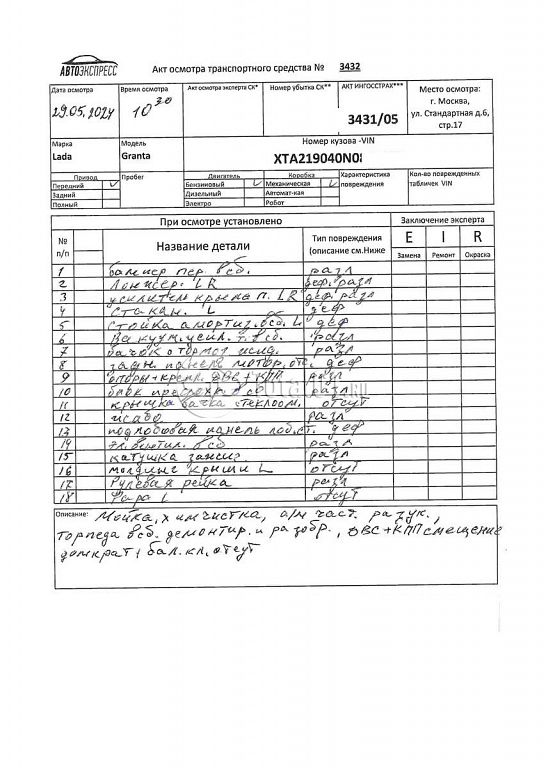 АВТОЭКСПРЕСС
Акт осмотра транспортного средства № 3432
Дата осмотра
29.05.2024
Время осмотра
10 30
Акт осмотра эксперта СК*
Номер убытка СК**
АКТ ИНГОССТРАХ***
3431/05
Место осмотра:
г. Москва,
ул. Стандартная д.6,
стр.17
Марка
Lada
Модель
Granta
Номер кузова -VIN
XTA219040N0
Привод
Передний
Задний
Полный
Пробег
Двигатель
Бензиновый
Дизельный
Электро
Коробка
Механическая
Автомат-кая
Робот
Характеристика
повреждения
Кол-во поврежденных
табличек VIN
При осмотре установлено
Заключение эксперта
№
п/п
Название детали
Тип повреждения
(описание см.Ниже
E I R
Замена Ремонт Окраска
1 бампер пер. всб. разл
2 Лонжер. LR деф, разл
3 усилитель крыла п. LR деф. разл
4 Стакан. L деф
5 Стойка амортиз. всб. L деф
6 Вакуум. усил. т. всб. разл
7 бачок о тормоз жид. разл
8 задн. панель мотор. отс. деф
9 опоры+крепл. ДВС+КПП разл
10 блок предохр. в сб разл
11 крышка бачка стеклоом. отсут
12 разл
13 подлобовая панель лоб.ст. деф
14 эл. вентил. всб разл
15 катушка зажиг. разл
16 молдинг крыши L отсут
17 Рулевая рейка разл
18 Фара L отсут
Описание: Мойка, химчистка, а/м част. разук.,
торпеда всб. демонтир. и разобр., ДВС+КПП смещение
домкрат, бал. кл. отсут